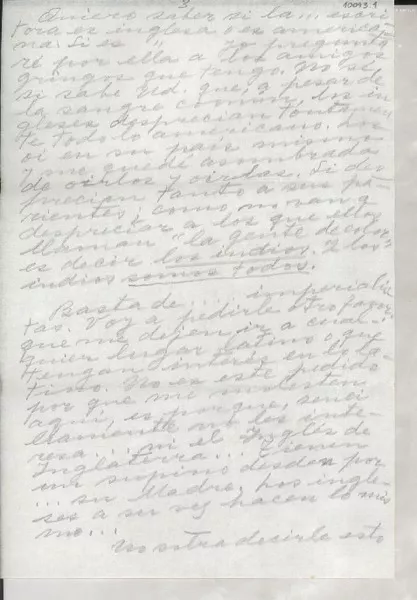 3
10093.1
Quiero saber si la... escri-
tora es inglesa o es america-
na. Si es " yo pregunta-
ré por ella a los amigos
gringos que tengo. No sé
si sabe Ud. que, a pesar de
la sangre común, los in-
gleses desprecian tontamen-
te todo lo americano. Los
oí en su país mismo
y me quedé asombrada
de oirlos y oirlas. Si des-
precian tanto a sus pa-
rientes, como no van a
despreciar a los que ellos
llaman "la gente de color"
es decir los indios. Y los
indios somos todos.
Basta de ... imperialis-
tas. Voy a pedirle otro favor:
que me dejen ir a cual-
quier lugar latino o que
tengan interés en lo la-
tino. No es este pedido
por que me molesten
aquí, es porque, senci-
llamente no les inte-
resa ... ni el Inglés de
Inglaterra... Tienen
un supino desdén por
... su Madre. Los ingle-
ses a su vez hacen lo mis
mo...
decirle esto